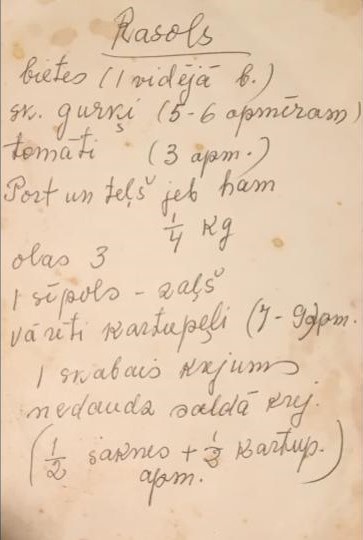 Rasols
bietes (1 vidējā b.)
sk. gurķi (5-6 apmēram)
tomāti (3 apm.)
Port un teļš jeb ham
1/4 kg
olas 3
1 sīpols - zaļš
vārīti kartupeļi (7-9) apm.
1 skabais krejums
nedaudz saldā krej.
(1/2 saknes + 1/2 kartup.)
apm.